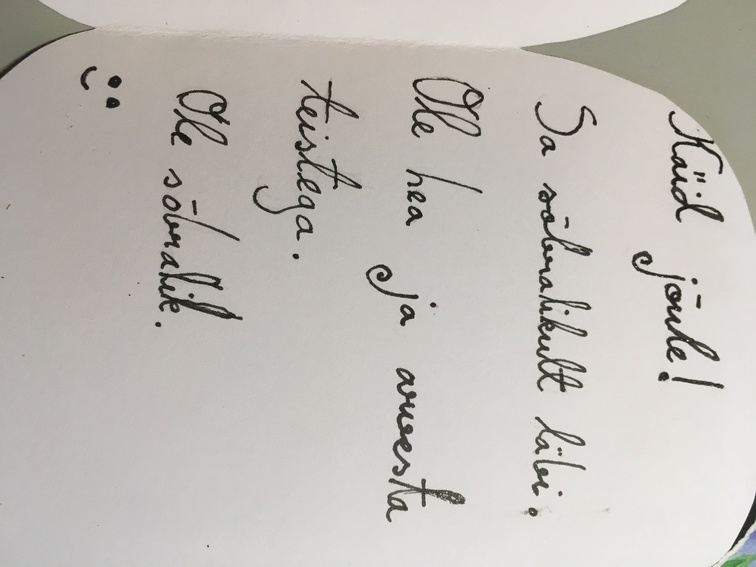 Häid jõule!
Sa sõbralikult läbi.
Ole hea ja arvesta
teistega.
Ole sõbralik.
:)